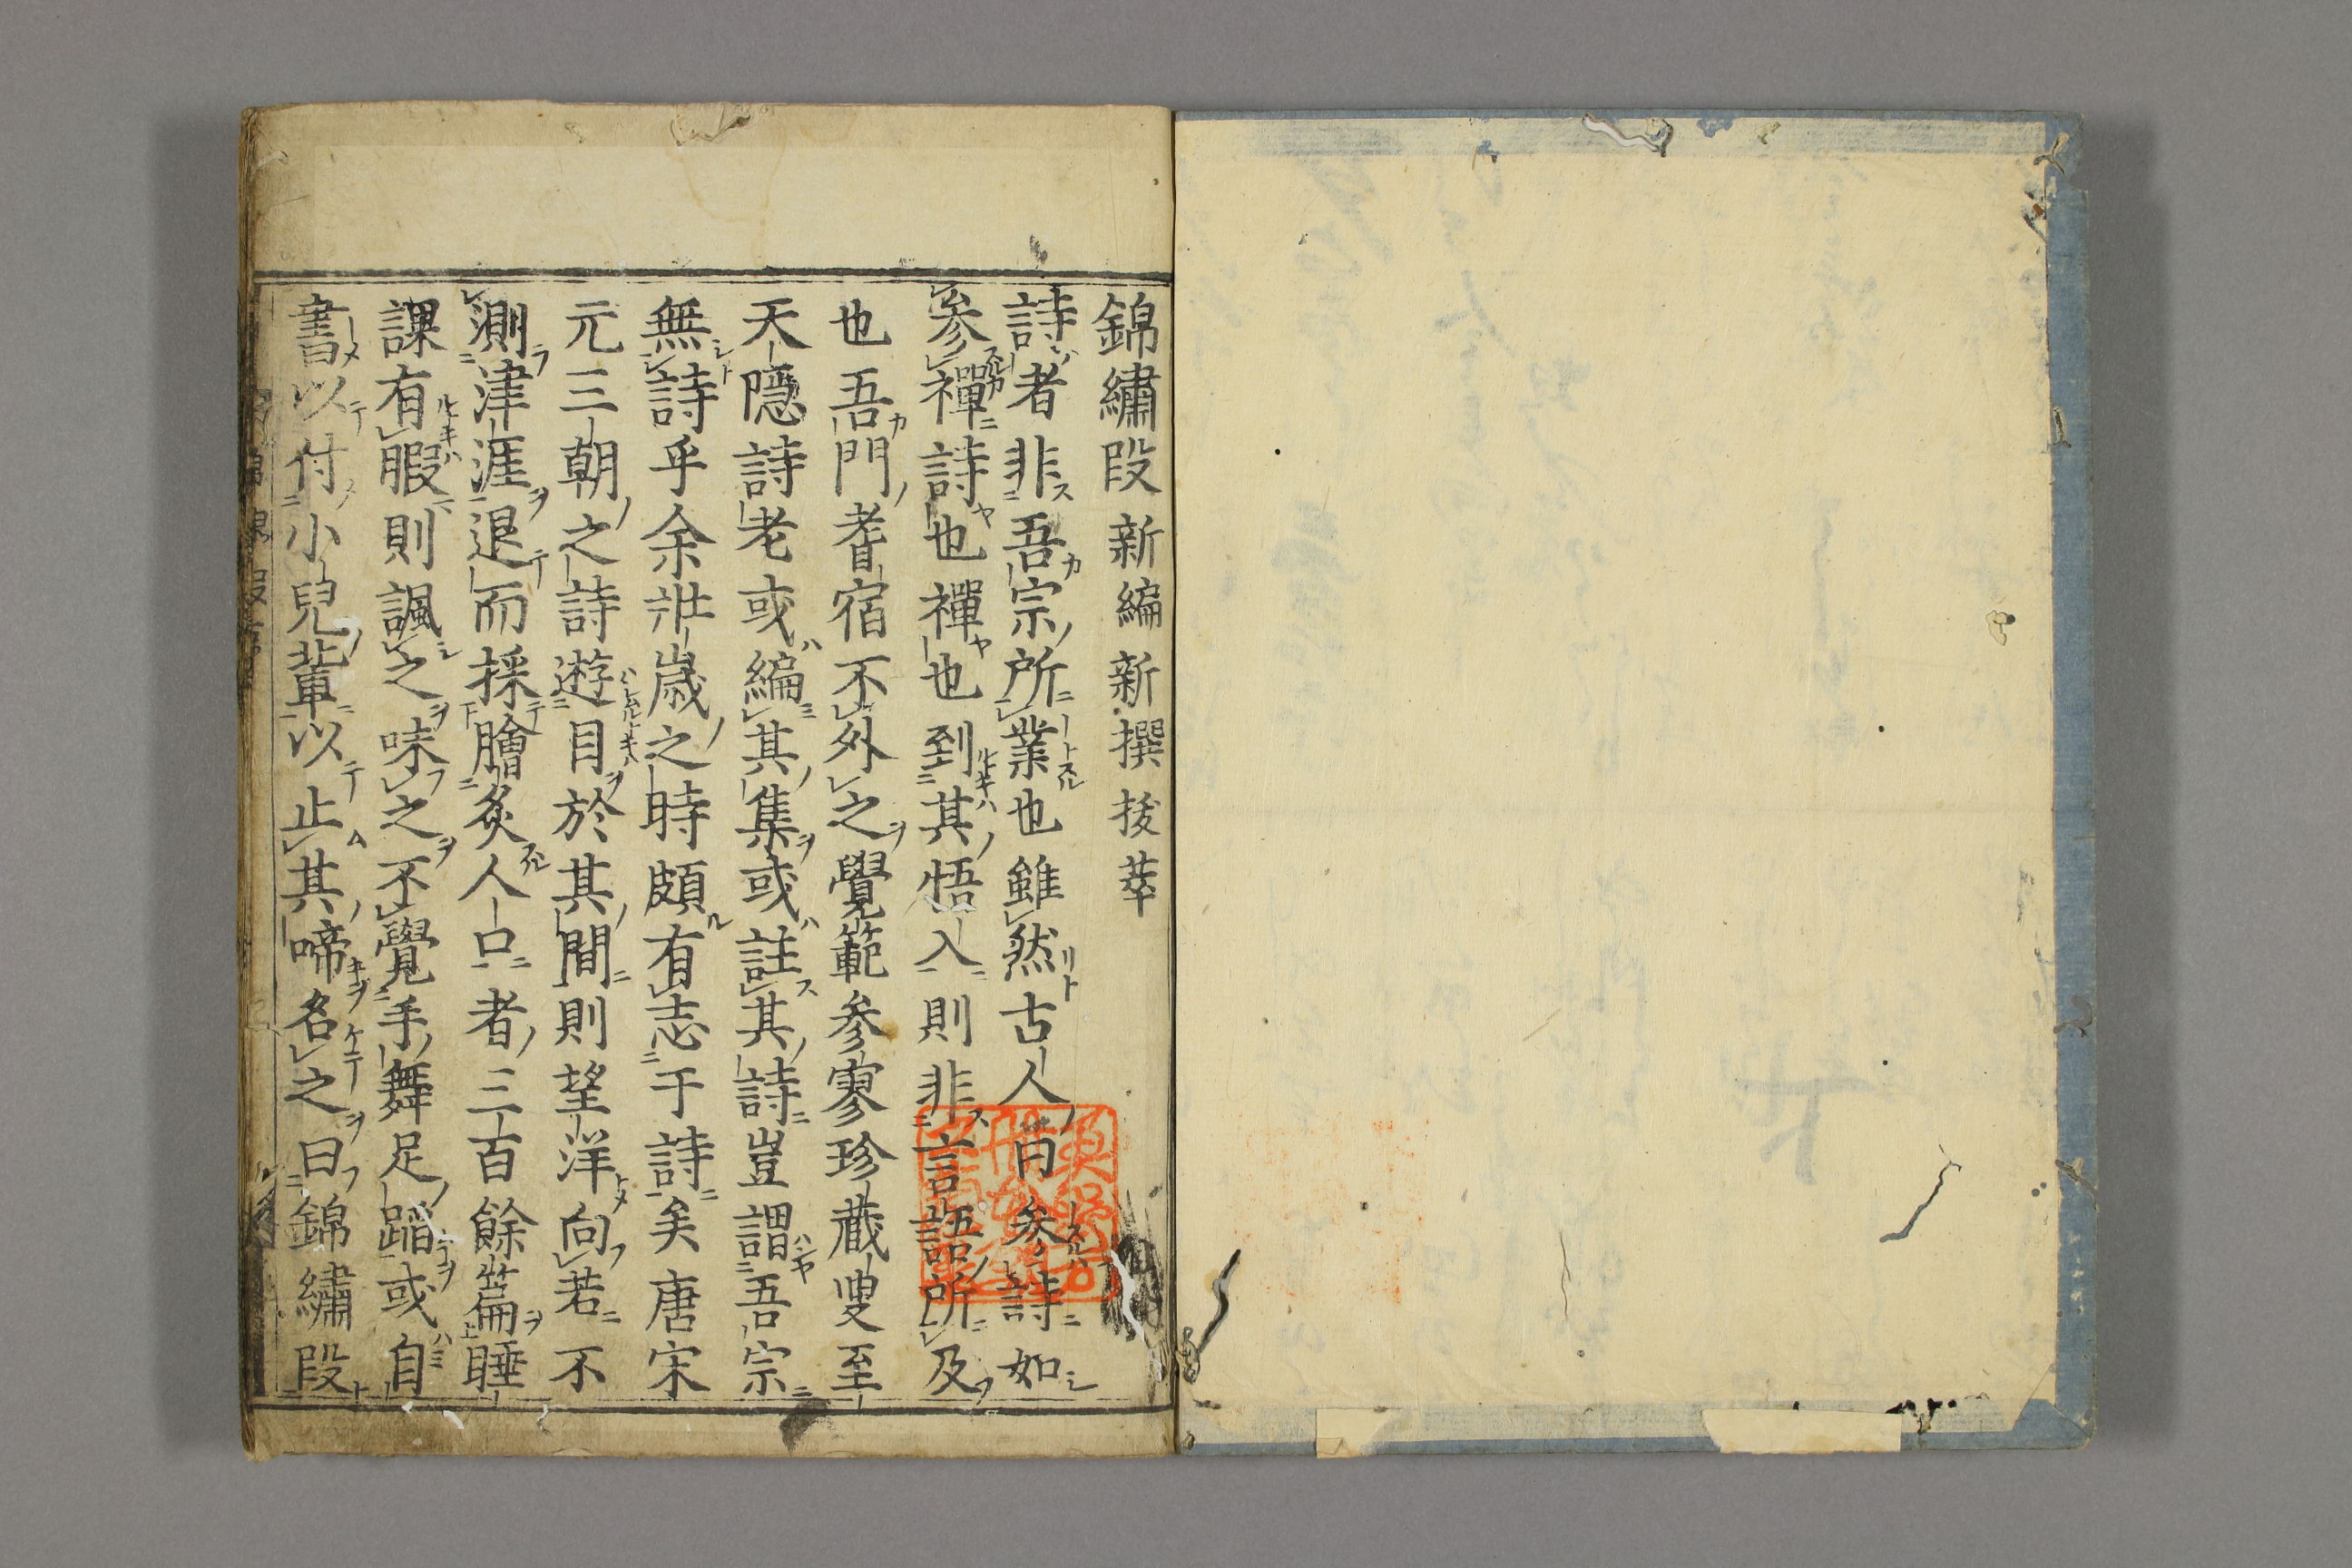 錦繡段 新編 新撰 拔萃
詩者非吾宗所業也雖然古人曰參詩如
參禪詩也禪也到其悟入則非言語所及
也吾門耆宿不外之覺範參寥珍藏叟至
天隱詩老或編其集或註其詩豈謂吾宗
無詩乎余壯歲之時頗有志于詩矣唐宋
元三朝之詩遊目於其間則望洋向若不
測津涯退而採膾炙人口者三百餘篇睡
課有暇則諷之味之不覺手舞足蹈或自
書以付小兒輩以止其啼名之曰錦繡段